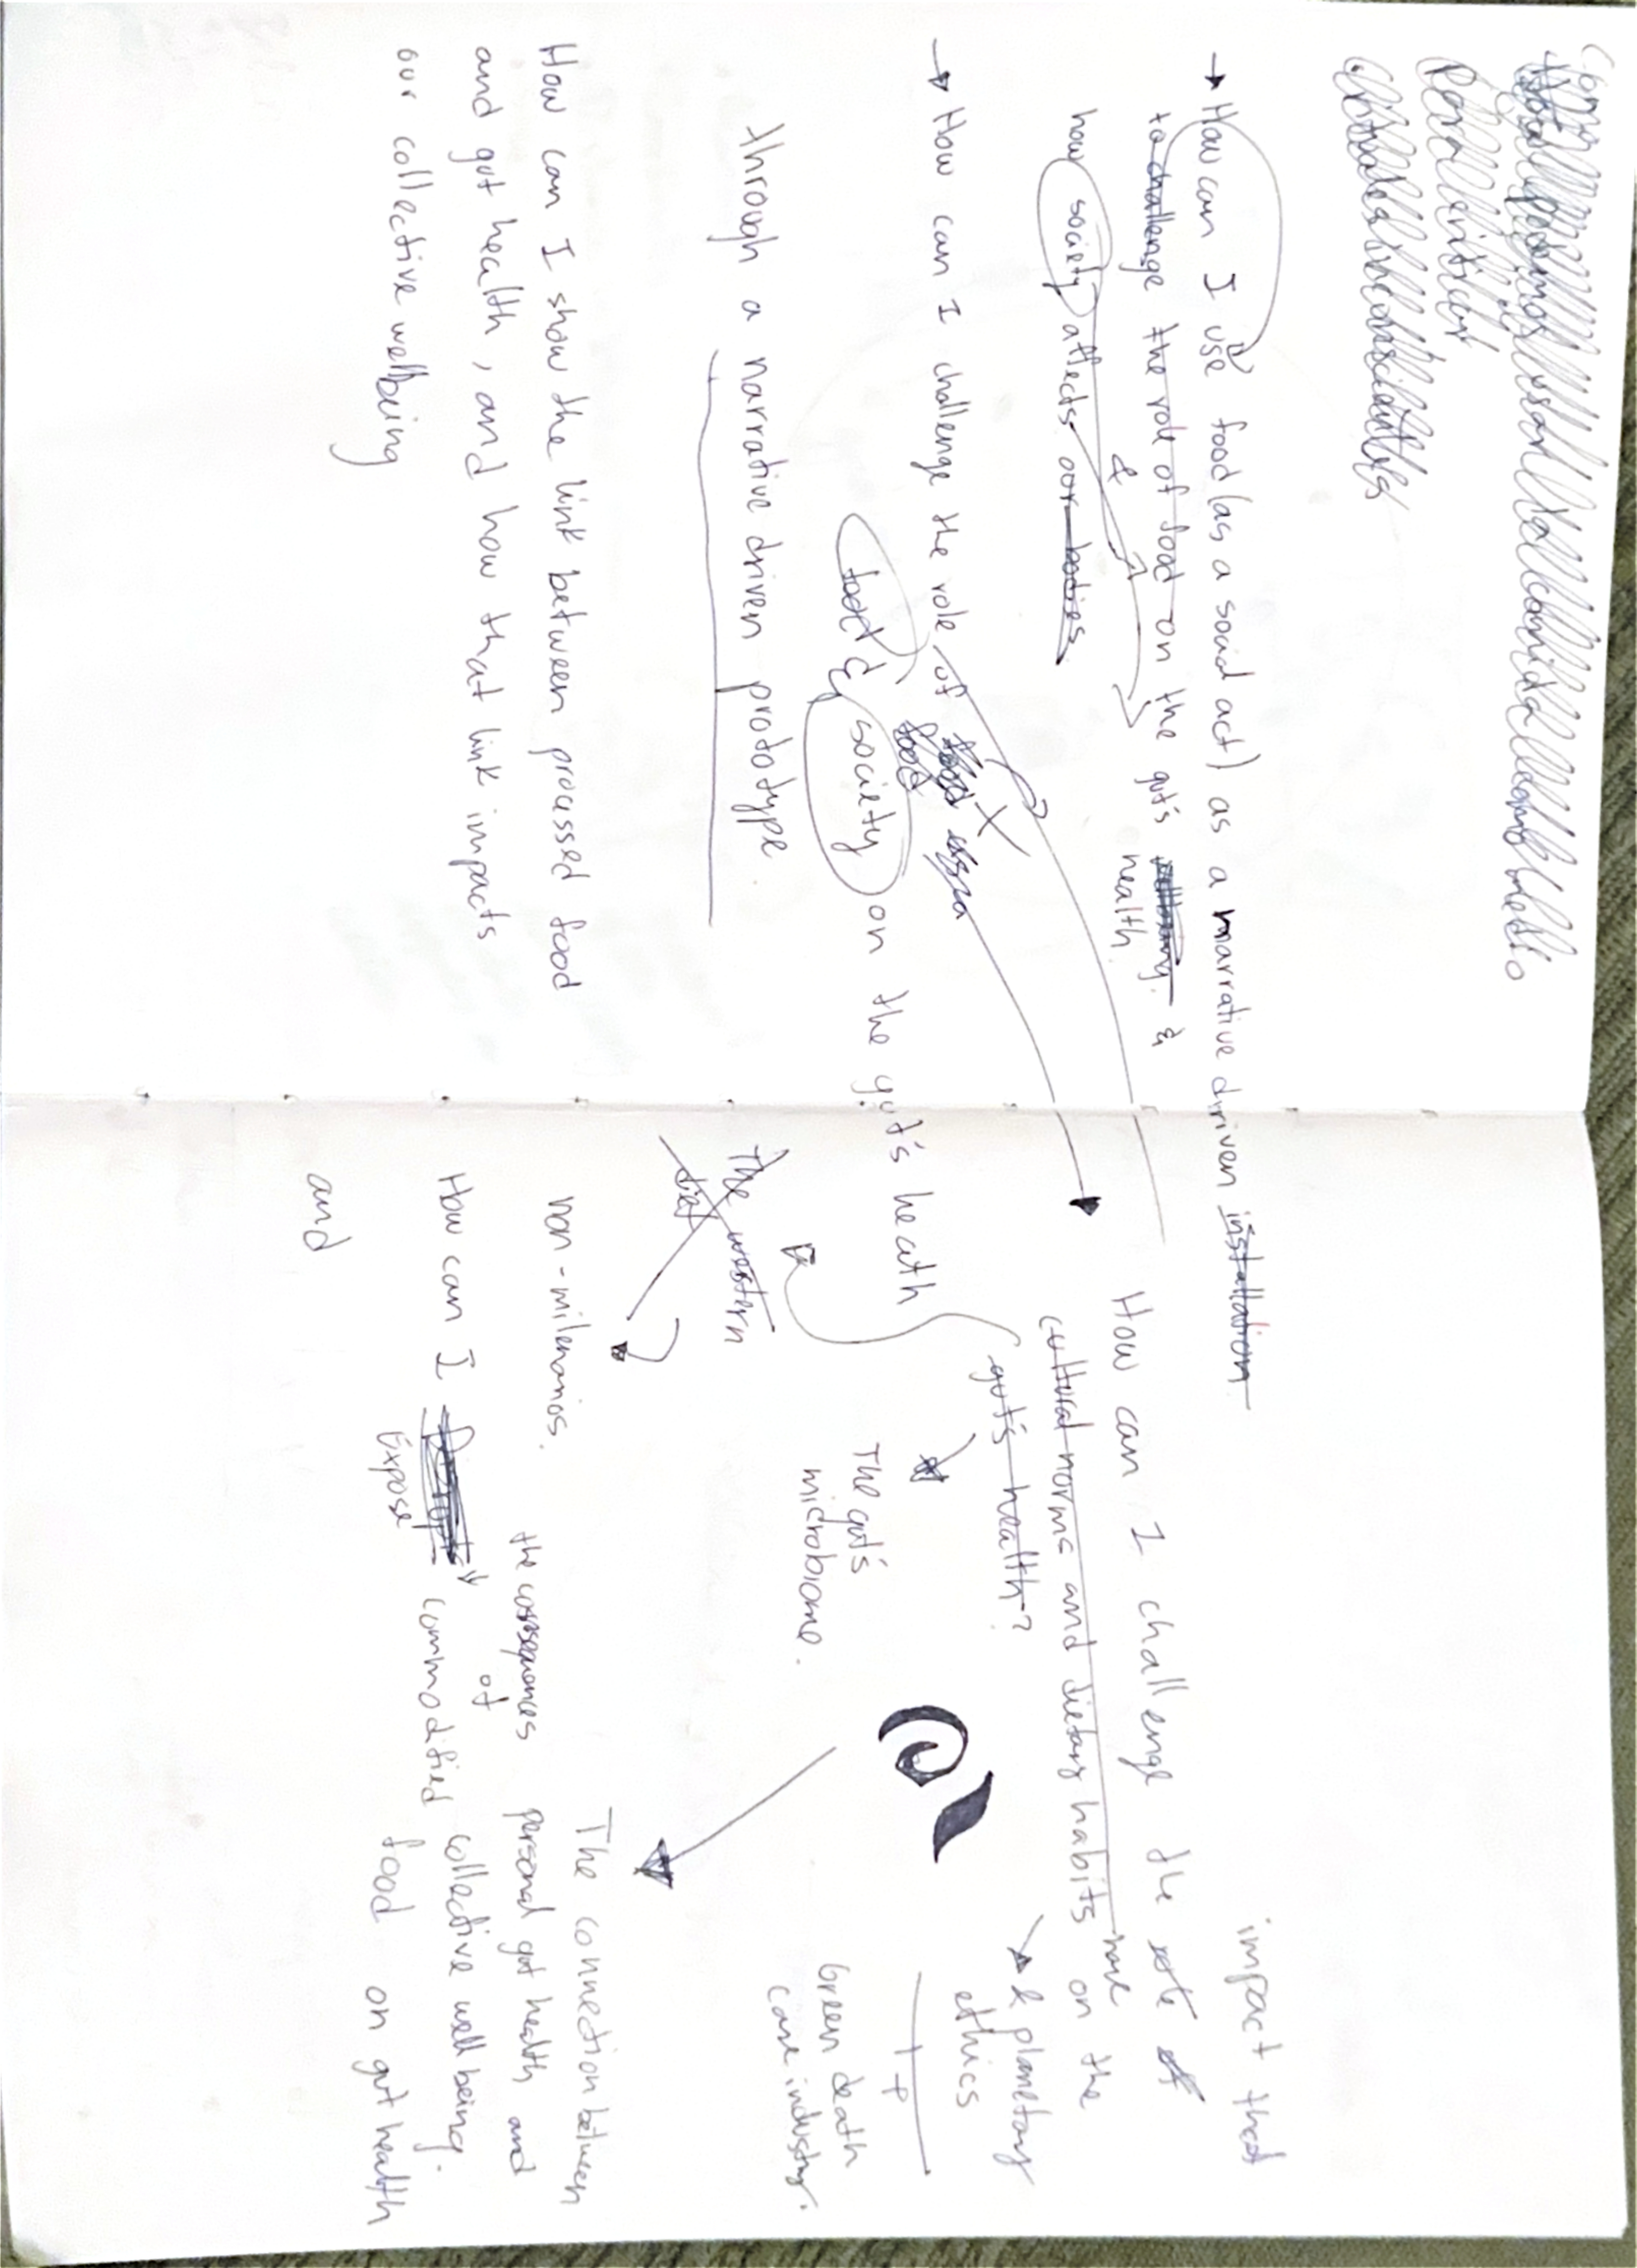 → How can I use food (as a social act) as a narrative driven installation
to challenge the role of food on the gut's health &
how society affects our bodies
&
→ How can I challenge the role of
food & society on the gut's heath
through a narrative driven prototype
How can I show the link between processed food
and gut health, and how that link impacts
our collective wellbeing
impact that
How can I challenge the role of
cultural norms and dietary habits have on the
gut's health?
& planetary
ethics
The gut's
microbiome.
Green death
care industry.
The western
diet
non-milenarios.
The connection between
personal gut health and
collective well being.
How can I
Expose
the consequences
of
commodified
food on gut health
and